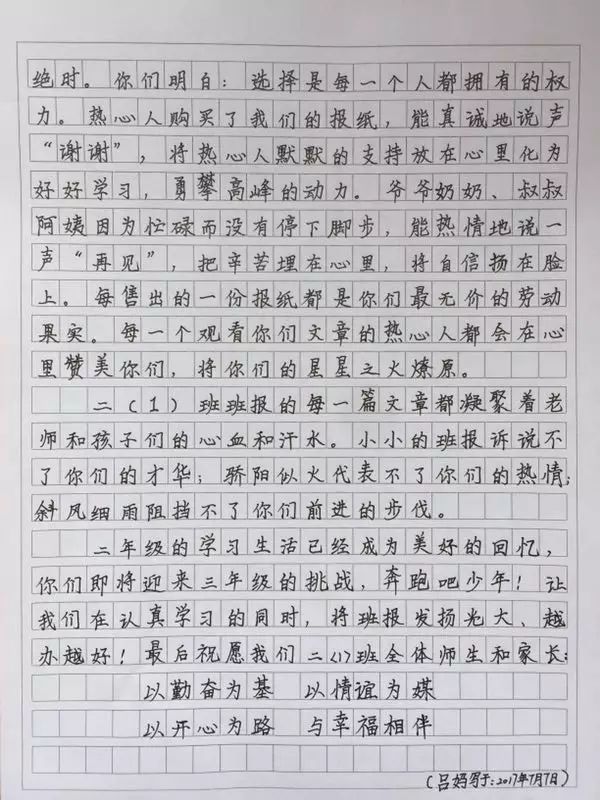 绝时。你们明白：选择是每一个人都拥有的权
力。热心人购买了我们的报纸，能真诚地说声
“谢谢”，将热心人默默的支持放在心里化为
好好学习，勇攀高峰的动力。爷爷奶奶、叔叔
阿姨因为忙碌而没有停下脚步，能热情地说一
声“再见”，把辛苦埋在心里，将自信扬在脸
上。每售出的一份报纸都是你们最无价的劳动
果实。每一个观看你们文章的热心人都会在心
里赞美你们，将你们的星星之火燎原。
二（1）班班报的每一篇文章都凝聚着老
师和孩子们的心血和汗水。小小的班报诉说不
了你们的才华；骄阳似火代表不了你们的热情；
斜风细雨阻挡不了你们前进的步伐。
二年级的学习生活已经成为美好的回忆，
你们即将迎来三年级的挑战，奔跑吧少年！让
我们在认真学习的同时，将班报发扬光大、越
办越好！最后祝愿我们二（1）班全体师生和家长：
以勤奋为基 以情谊为媒
以开心为路 与幸福相伴
（吕妈写于：2017年7月7日）